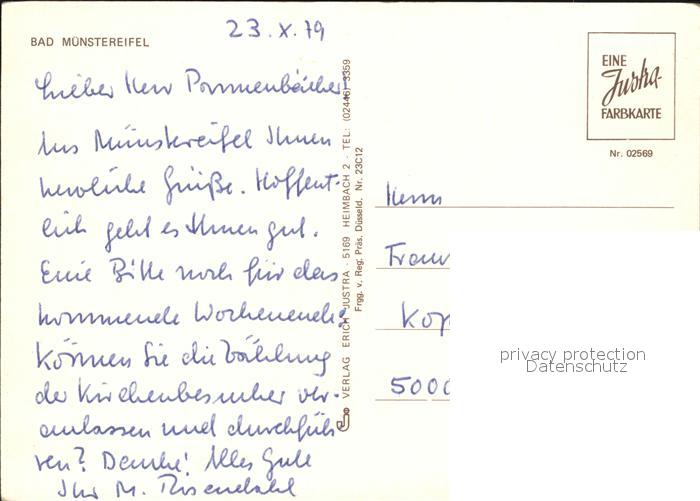 BAD MÜNSTEREIFEL
23.X.79
Lieber Herr Pommenbächer!
Aus Münstereifel Ihnen
herzliche Grüße. Hoffent-
lich geht es Ihnen gut.
Eine Bitte noch für das
kommende Wochenende:
Können Sie die Zählung
der Kirchenbesucher ver-
anlassen und durchfüh-
ren? Danke! Alles Gute
Ihr M. Rosendahl
VERLAG ERICH JUSTRA · 5169 HEIMBACH 2 · TEL: (02446) 3359
Frgg. v. Reg. Präs. Düsseld. Nr. 23C12
EINE
Justra-
FARBKARTE
Nr. 02569
Herrn
5000
privacy protection
Datenschutz